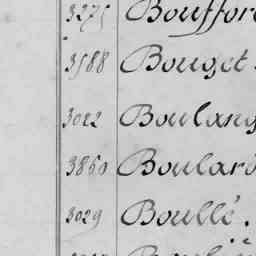 3275 Bouffor
3588 Bouget.
3022 Boulang
3860 Boulard
3029 Boullé.